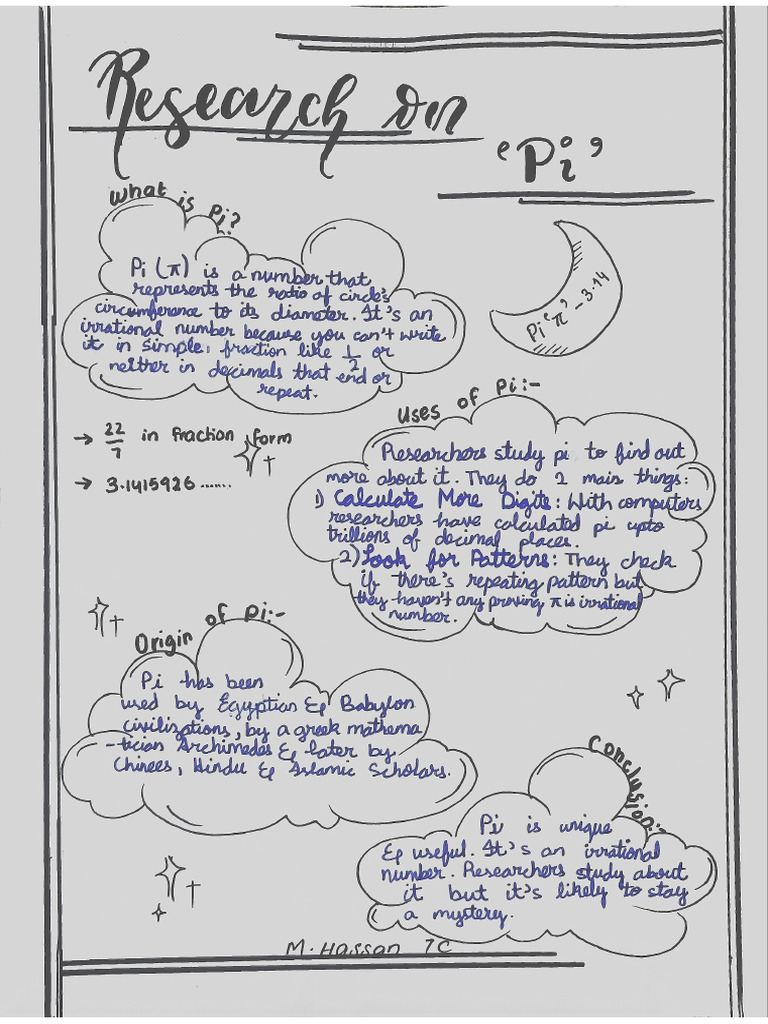 Research on
'Pi'
What is Pi?
Pi (π) is a number that
represents the ratio of circle's
circumference to its diameter. It's an
irrational number because you can't write
it in simple. fraction like 1/2 or
neither in decimals that end or
repeat.
Pi 'π' - 3.14
→ 22/7 in fraction form
→ 3.1415926......
Uses of Pi:-
Researchers study pi to find out
more about it. They do 2 main things:
1) Calculate More Digits: With computers
researchers have calculated pi upto
trillions of decimal places.
2) Look for Patterns: They check
if there's repeating pattern but
they haven't any proving π is irrational
number.
Origin of Pi:-
Pi has been
used by Egyptian & Babylon
civilizations, by a greek mathema
-tician Archimedes & later by
Chinees, Hindu & Islamic Scholars.
Conclusion:-
Pi is unique
& useful. It's an irrational
number. Researchers study about
it but it's likely to stay
a mystery.
M. Hassan 7C